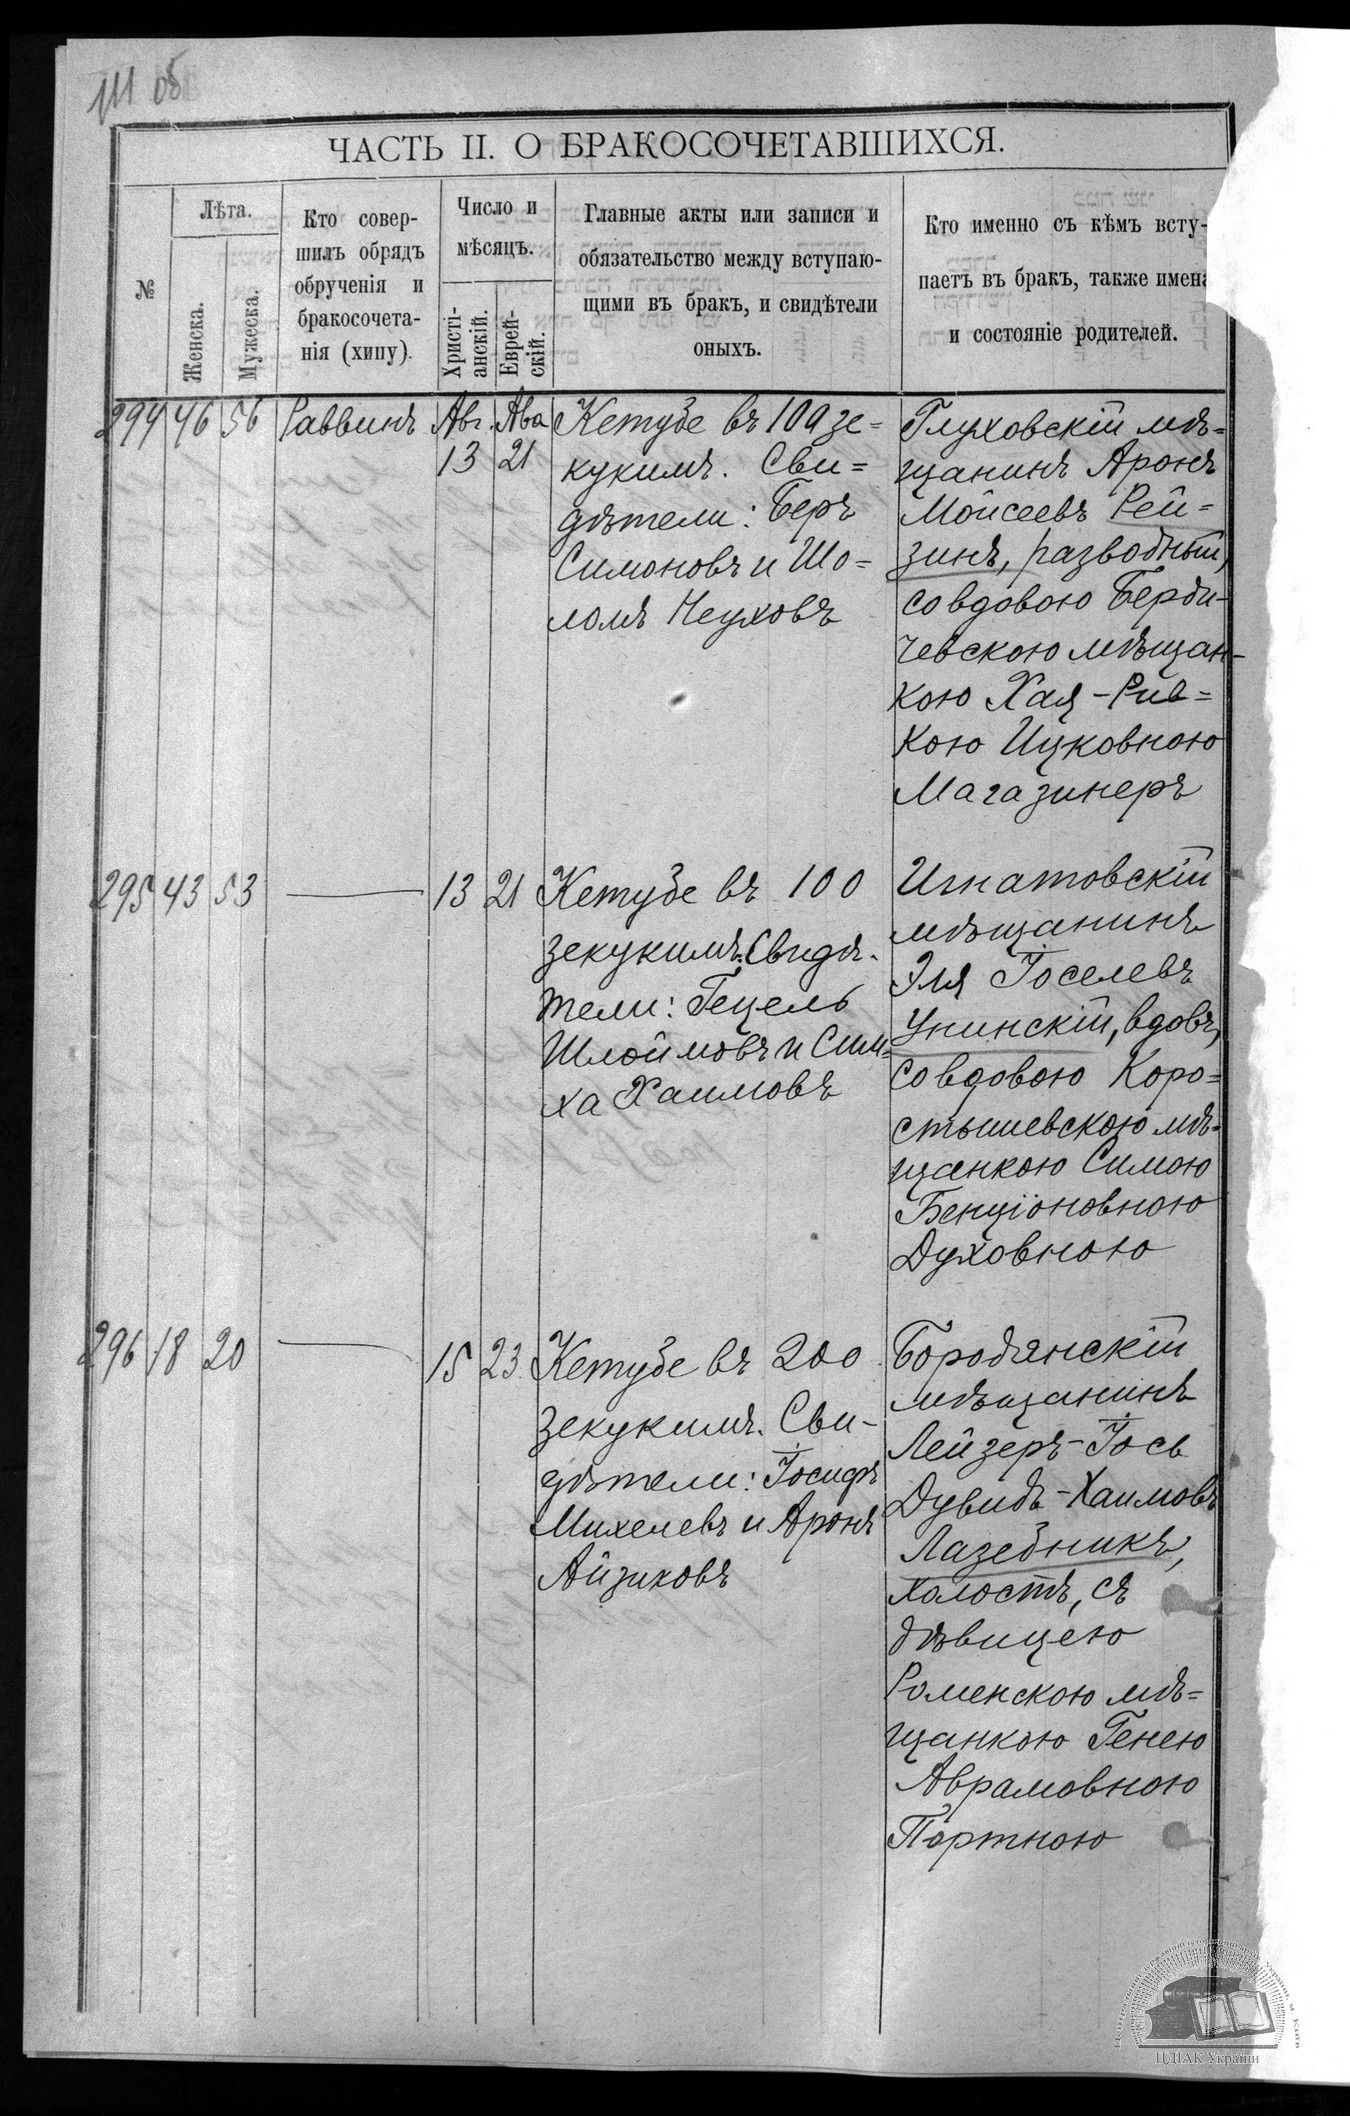 111 об
ЧАСТЬ II. О БРАКОСОЧЕТАВШИХСЯ.
№
Лѣта.
Женска.
Мужеска.
Кто совер-
шилъ обрядъ
обрученія и
бракосочета-
нія (хипу).
Число и
мѣсяцъ.
Христі-
анскій.
Еврей-
скій.
Главные акты или записи и
обязательство между вступаю-
щими въ бракъ, и свидѣтели
оныхъ.
Кто именно съ кѣмъ всту-
паетъ въ бракъ, также имена
и состояніе родителей.
294 46 56 Раввинъ Авг. 13 Ава 21
Кетубе въ 100 зе=
кукимъ. Сви=
дѣтели: Беръ
Симоновъ и Шо=
ломъ Неуховъ
Глуховскій мѣ=
щанинъ Аронъ
Мойсеевъ Рей=
зинъ, разводный,
со вдовою Берди-
чевскою мѣщан-
кою Хая-Рив=
кою Ицковною
Магазинеръ
295 43 53 — 13 21
Кетубе въ 100
зекукимъ. Свидѣ-
тели: Гецель
Шлоймовъ и Сим=
ха Хаимовъ
Игнатовскій
мѣщанинъ
Эля Іоселевъ
Унинскій, вдовъ,
со вдовою Коро=
стышевскою мѣ-
щанкою Симою
Бенціоновною
Духовною
296 18 20 — 15 23.
Кетубе въ 200
зекукимъ. Сви-
дѣтели: Іосифъ
Михелевъ и Аронъ
Айзиковъ
Бородянскій
мѣщанинъ
Лейзеръ-Іось
Дувидъ-Хаимовъ
Лазебникъ,
холостъ, съ
дѣвицею
Роменскою мѣ=
щанкою Генею
Аврамовною
Портною
ЦДІАК України